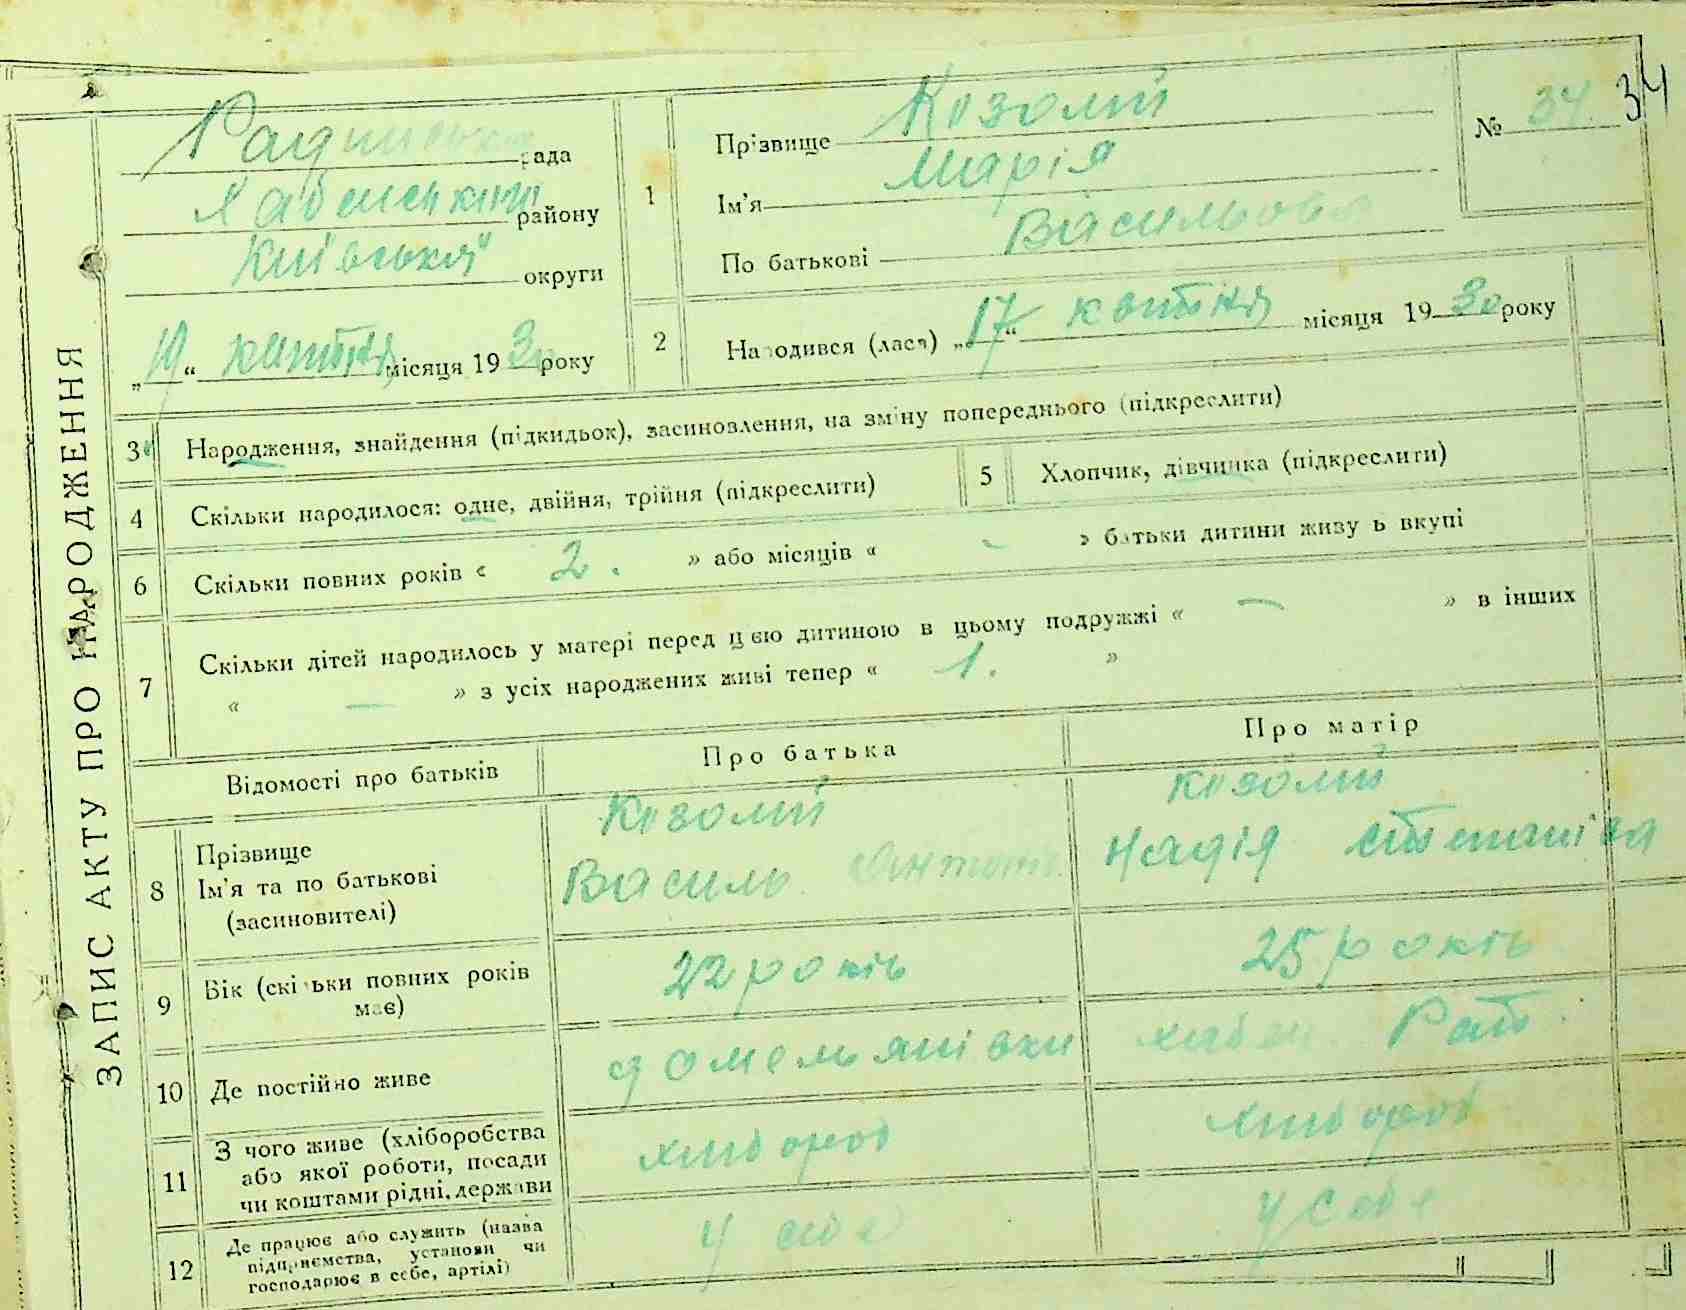 ЗАПИС АКТУ ПРО НАРОДЖЕННЯ
рада
району
Київської округи
„19“ квітня місяця 1930 року
1
Прізвище Козолій
Ім'я Марія
По батькові Васильовна
№ 34 34
2 Народився (лася) „17“ квітня місяця 1930 року
3 Народження, знайдення (підкидьок), засиновлення, на зміну попереднього (підкреслити)
4 Скільки народилося: одне, двійня, трійня (підкреслити) 5 Хлопчик, дівчинка (підкреслити)
6 Скільки повних років « 2. » або місяців « - » батьки дитини живуть вкупі
7 Скільки дітей народилось у матері перед цією дитиною в цьому подружжі « — » в інших
« — » з усіх народжених живі тепер « 1. »
Відомості про батьків Про батька Про матір
8 Прізвище
Ім'я та по батькові
(засиновителі)
Козолій
Василь Антон.
Козолій
Надія Степанівна
9 Вік (скільки повних років
має)
22 років
25 років
10 Де постійно живе
Домельянівки
11 З чого живе (хліборобства
або якої роботи, посади
чи коштами рідні, держави
хлібороб
хлібороб
12 Де працює або служить (назва
підприємства, установи чи
господарює в себе, артілі)
у себе
у себе